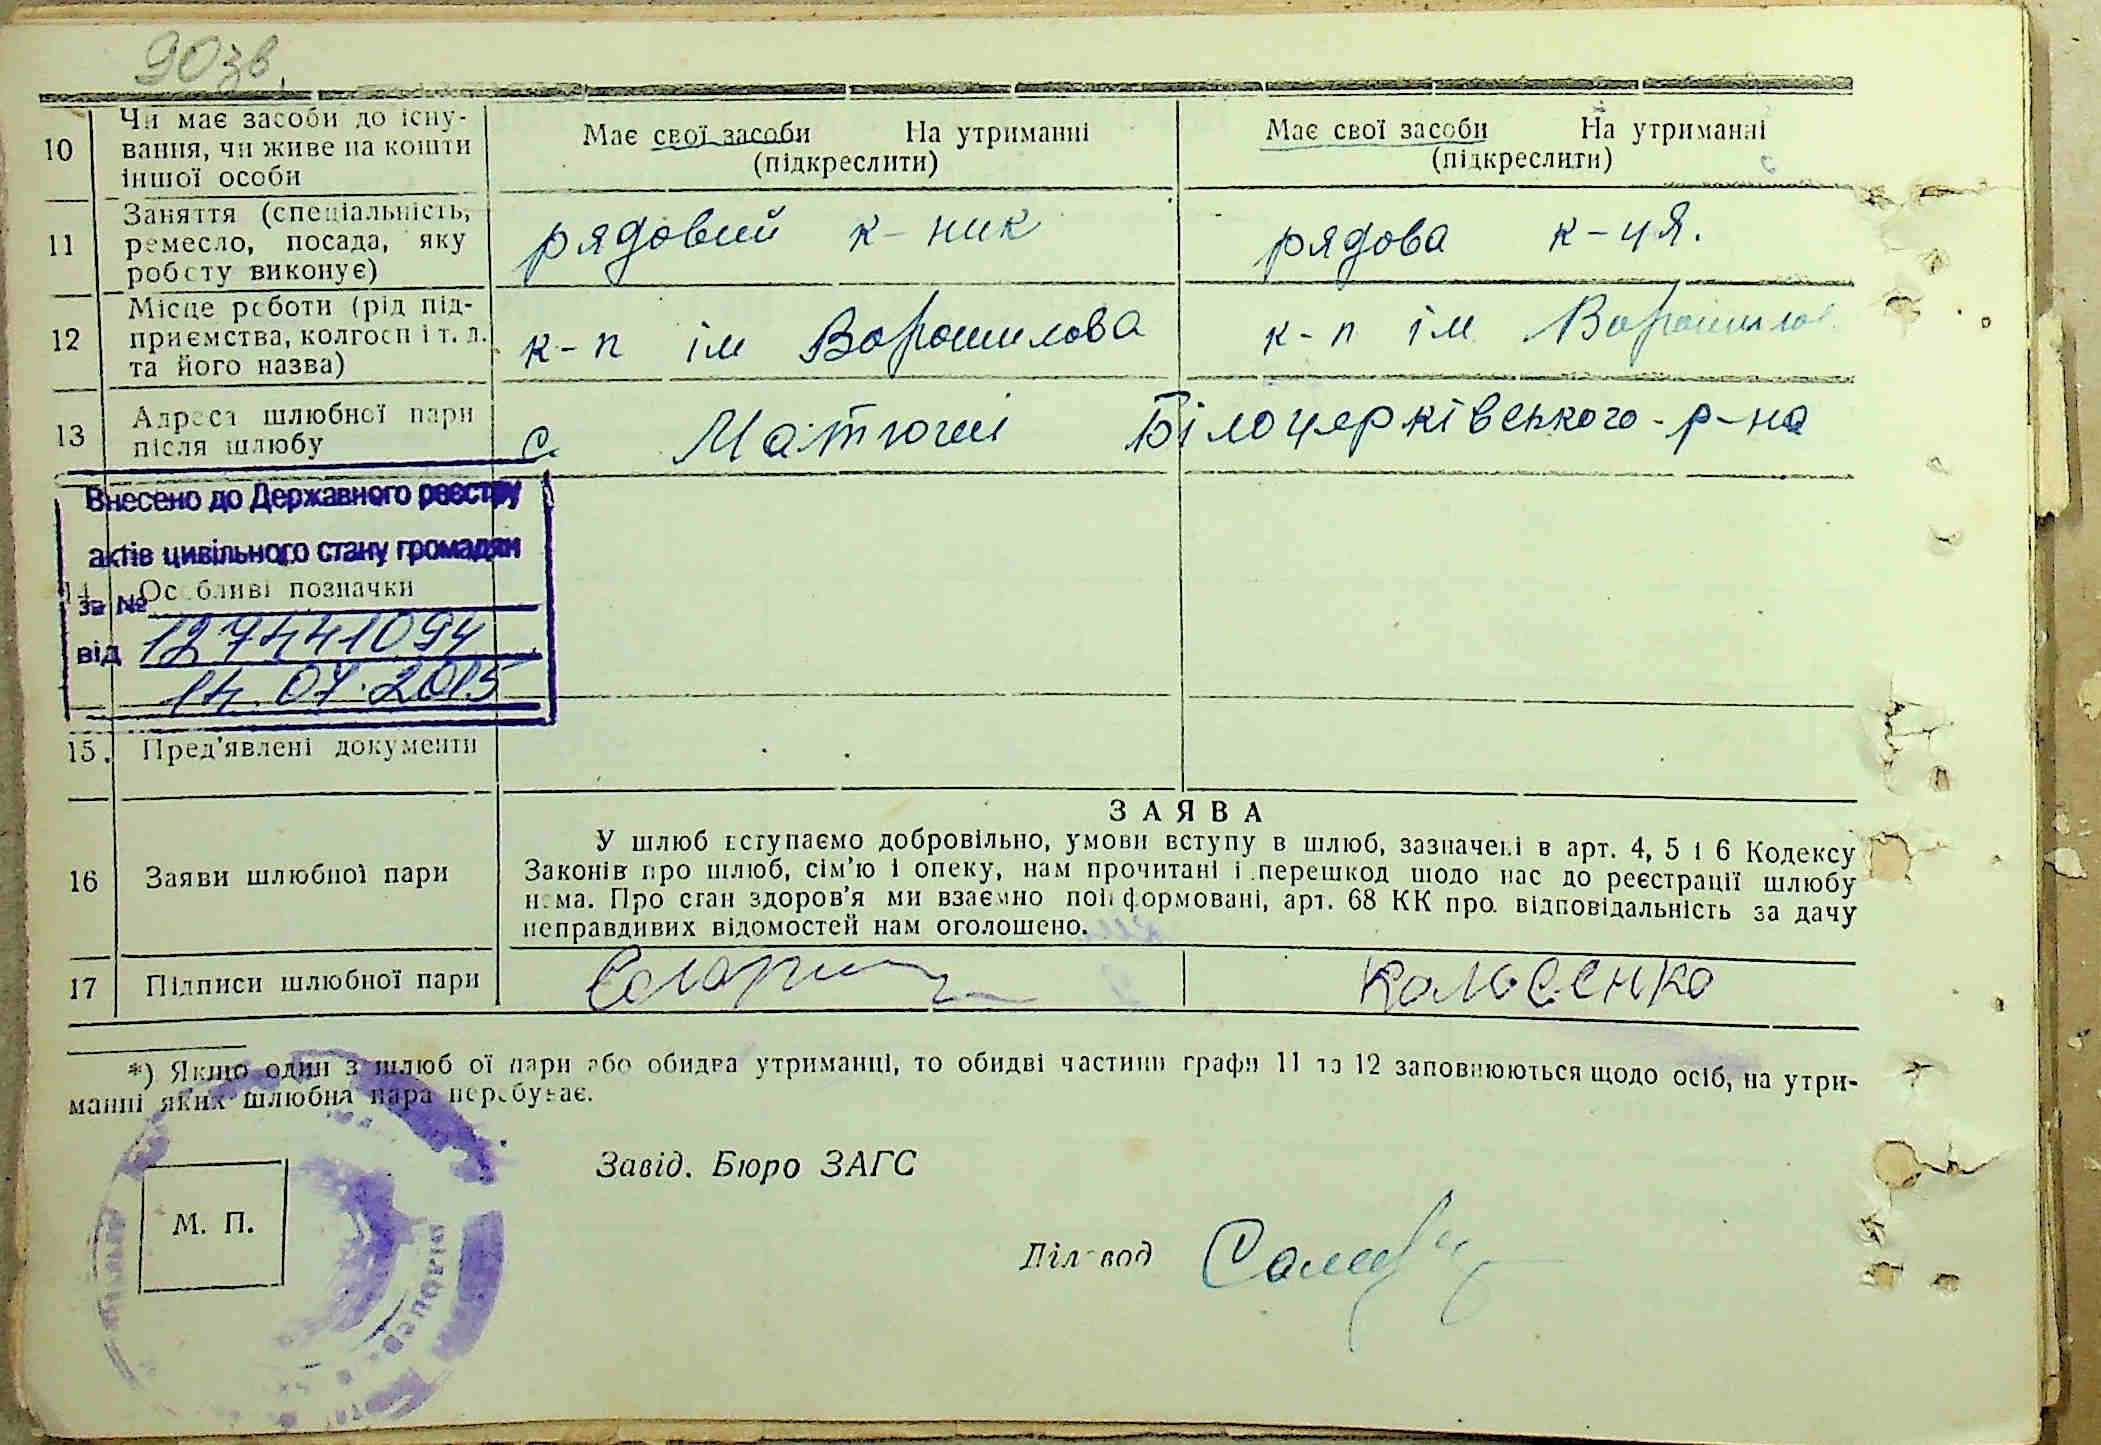 90зв.
10 Чи має засоби до існу-
вання, чи живе на кошти
іншої особи
Має свої засоби На утриманні
(підкреслити)
Має свої засоби На утриманні
(підкреслити)
11 Заняття (спеціальність,
ремесло, посада, яку
роботу виконує)
рядовий к-ник
рядова к-ця.
12 Місце роботи (рід під-
приємства, колгосп і т. д.
та його назва)
к-п ім Ворошилова
к-п ім Ворошилов
13 Адреса шлюбної пари
після шлюбу
с. Матюші Білоцерківського р-на
Внесено до Державного реєстру
актів цивільного стану громадян
14 Особливі позначки
за №
від 127441094
14.07.2015
15. Пред'явлені документи
16 Заяви шлюбної пари
ЗАЯВА
У шлюб вступаємо добровільно, умови вступу в шлюб, зазначені в арт. 4, 5 і 6 Кодексу
Законів про шлюб, сім'ю і опеку, нам прочитані і перешкод щодо нас до реєстрації шлюбу
нема. Про стан здоров'я ми взаємно поінформовані, арт. 68 КК про відповідальність за дачу
неправдивих відомостей нам оголошено.
17 Підписи шлюбної пари
*) Якщо один з шлюбної пари або обидва утриманці, то обидві частини графи 11 та 12 заповнюються щодо осіб, на утри-
манні яких шлюбна пара перебуває.
Завід. Бюро ЗАГС
М. П.
Діловод